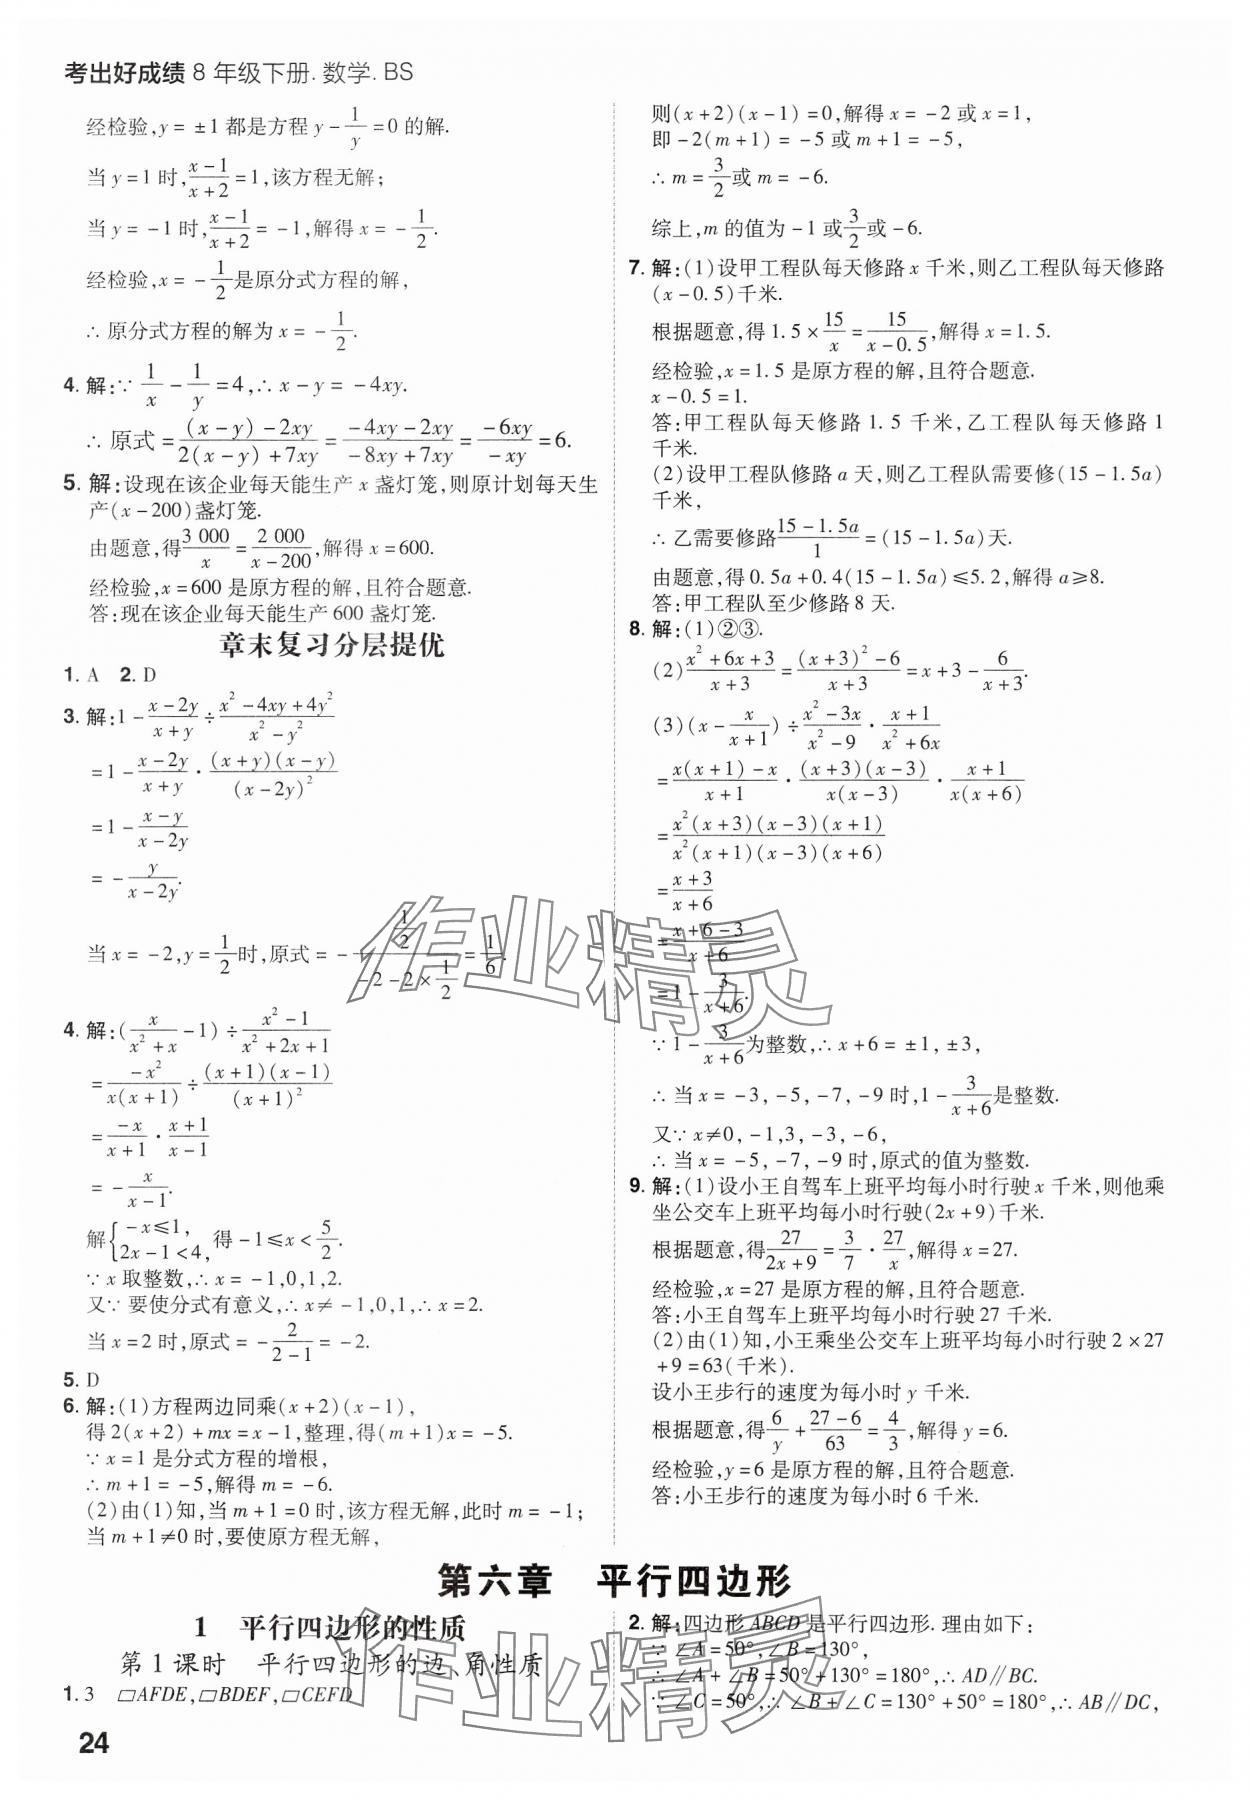 考出好成绩 8 年级下册. 数学. BS
经检验,y = ±1 都是方程 y - 1/y = 0 的解.
当 y = 1 时, (x-1)/(x+2) = 1,该方程无解;
当 y = -1 时, (x-1)/(x+2) = -1,解得 x = -1/2.
经检验,x = -1/2 是原分式方程的解,
∴ 原分式方程的解为 x = -1/2.
4. 解:∵ 1/x - 1/y = 4,∴ x - y = -4xy.
∴ 原式 = ((x-y)-2xy)/(2(x-y)+7xy) = (-4xy-2xy)/(-8xy+7xy) = (-6xy)/(-xy) = 6.
5. 解:设现在该企业每天能生产 x 盏灯笼,则原计划每天生
产(x-200)盏灯笼.
由题意,得 3 000/x = 2 000/(x-200),解得 x = 600.
经检验,x = 600 是原方程的解,且符合题意.
答:现在该企业每天能生产 600 盏灯笼.
章末复习分层提优
1. A 2. D
3. 解:1 - (x-2y)/(x+y) ÷ (x²-4xy+4y²)/(x²-y²)
= 1 - (x-2y)/(x+y) · ((x+y)(x-y))/((x-2y)²)
= 1 - (x-y)/(x-2y)
= - y/(x-2y).
当 x = -2,y = 1/2 时,原式 = - (1/2)/(-2-2×1/2) = 1/6.
4. 解:(x/(x²+x) - 1) ÷ (x²-1)/(x²+2x+1)
= (-x²)/(x(x+1)) ÷ ((x+1)(x-1))/((x+1)²)
= (-x)/(x+1) · (x+1)/(x-1)
= - x/(x-1).
解{-x≤1, 2x-1<4, 得 -1≤x<5/2.
∵ x 取整数,∴ x = -1,0,1,2.
又∵ 要使分式有意义,∴ x≠ -1,0,1,∴ x = 2.
当 x = 2 时,原式 = - 2/(2-1) = -2.
5. D
6. 解:(1)方程两边同乘(x+2)(x-1),
得 2(x+2)+mx = x-1,整理,得(m+1)x = -5.
∵ x = 1 是分式方程的增根,
∴ m+1 = -5,解得 m = -6.
(2)由(1)知,当 m+1 = 0 时,该方程无解,此时 m = -1;
当 m+1≠0 时,要使原方程无解,
则(x+2)(x-1) = 0,解得 x = -2 或 x = 1,
即 -2(m+1) = -5 或 m+1 = -5,
∴ m = 3/2 或 m = -6.
综上,m 的值为 -1 或 3/2 或 -6.
7. 解:(1)设甲工程队每天修路 x 千米,则乙工程队每天修路
(x-0.5)千米.
根据题意,得 1.5 × 15/x = 15/(x-0.5),解得 x = 1.5.
经检验,x = 1.5 是原方程的解,且符合题意.
x-0.5 = 1.
答:甲工程队每天修路 1.5 千米,乙工程队每天修路 1
千米.
(2)设甲工程队修路 a 天,则乙工程队需要修(15-1.5a)
千米,
∴ 乙需要修路 (15-1.5a)/1 = (15-1.5a)天.
由题意,得 0.5a+0.4(15-1.5a)≤5.2,解得 a≥8.
答:甲工程队至少修路 8 天.
8. 解:(1)②③.
(2) (x²+6x+3)/(x+3) = ((x+3)²-6)/(x+3) = x+3 - 6/(x+3).
(3)(x - x/(x+1)) ÷ (x²-3x)/(x²-9) · (x+1)/(x²+6x)
= (x(x+1)-x)/(x+1) · ((x+3)(x-3))/(x(x-3)) · (x+1)/(x(x+6))
= (x²(x+3)(x-3)(x+1))/(x²(x+1)(x-3)(x+6))
= (x+3)/(x+6)
= (x+6-3)/(x+6)
= 1 - 3/(x+6).
∵ 1 - 3/(x+6) 为整数,∴ x+6 = ±1, ±3,
∴ 当 x = -3, -5, -7, -9 时,1 - 3/(x+6) 是整数.
又∵ x≠0, -1,3, -3, -6,
∴ 当 x = -5, -7, -9 时,原式的值为整数.
9. 解:(1)设小王自驾车上班平均每小时行驶 x 千米,则他乘
坐公交车上班平均每小时行驶(2x+9)千米.
根据题意,得 27/(2x+9) = 3/7 · 27/x,解得 x = 27.
经检验,x = 27 是原方程的解,且符合题意.
答:小王自驾车上班平均每小时行驶 27 千米.
(2)由(1)知,小王乘坐公交车上班平均每小时行驶 2×27
+9 = 63(千米).
设小王步行的速度为每小时 y 千米.
根据题意,得 6/y + (27-6)/63 = 4/3,解得 y = 6.
经检验,y = 6 是原方程的解,且符合题意.
答:小王步行的速度为每小时 6 千米.
第六章 平行四边形
1 平行四边形的性质
第 1 课时 平行四边形的边、角性质
1. 3 ▱AFDE,▱BDEF,▱CEFD
2. 解:四边形 ABCD 是平行四边形. 理由如下:
∵ ∠A = 50°,∠B = 130°,
∴ ∠A + ∠B = 50° + 130° = 180°,∴ AD∥BC.
∵ ∠C = 50°,∴ ∠B + ∠C = 130° + 50° = 180°,∴ AB∥DC,
24
作业精灵
作业精灵